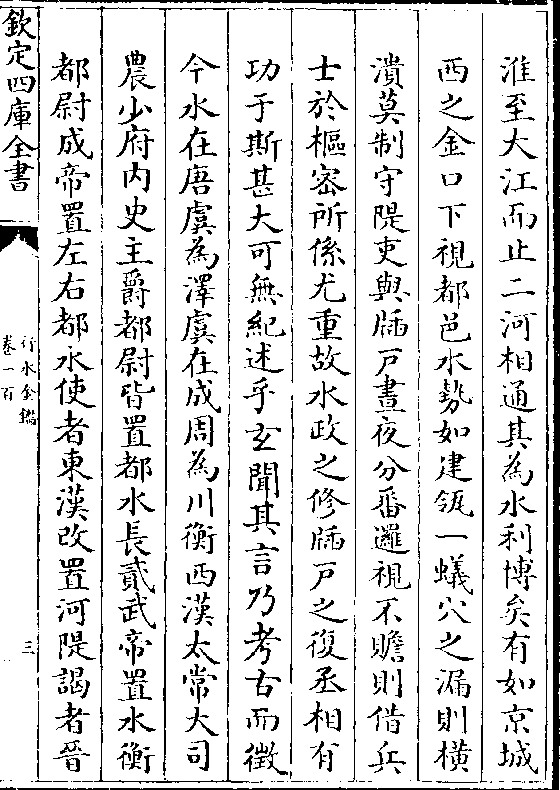 淮至大江而止二河相通其為水利博矣有如京城
西之金口下視都邑水勢如建瓴一蟻穴之漏則橫
潰莫制守隄吏與牐戸晝夜分番邏視不贍則借兵
士於樞宻所係尤重故水政之修牐戸之復丞相有
功于斯甚大可無紀述乎玄聞其言乃考古而徵
今水在唐虞為澤虞在成周為川衡西漢太常大司
農少府内史主爵都尉皆置都水長貳武帝置水衡
都尉成帝置左右都水使者東漢改置河隄謁者晉
欽定四庫全書
行水金鑑
卷一百
三